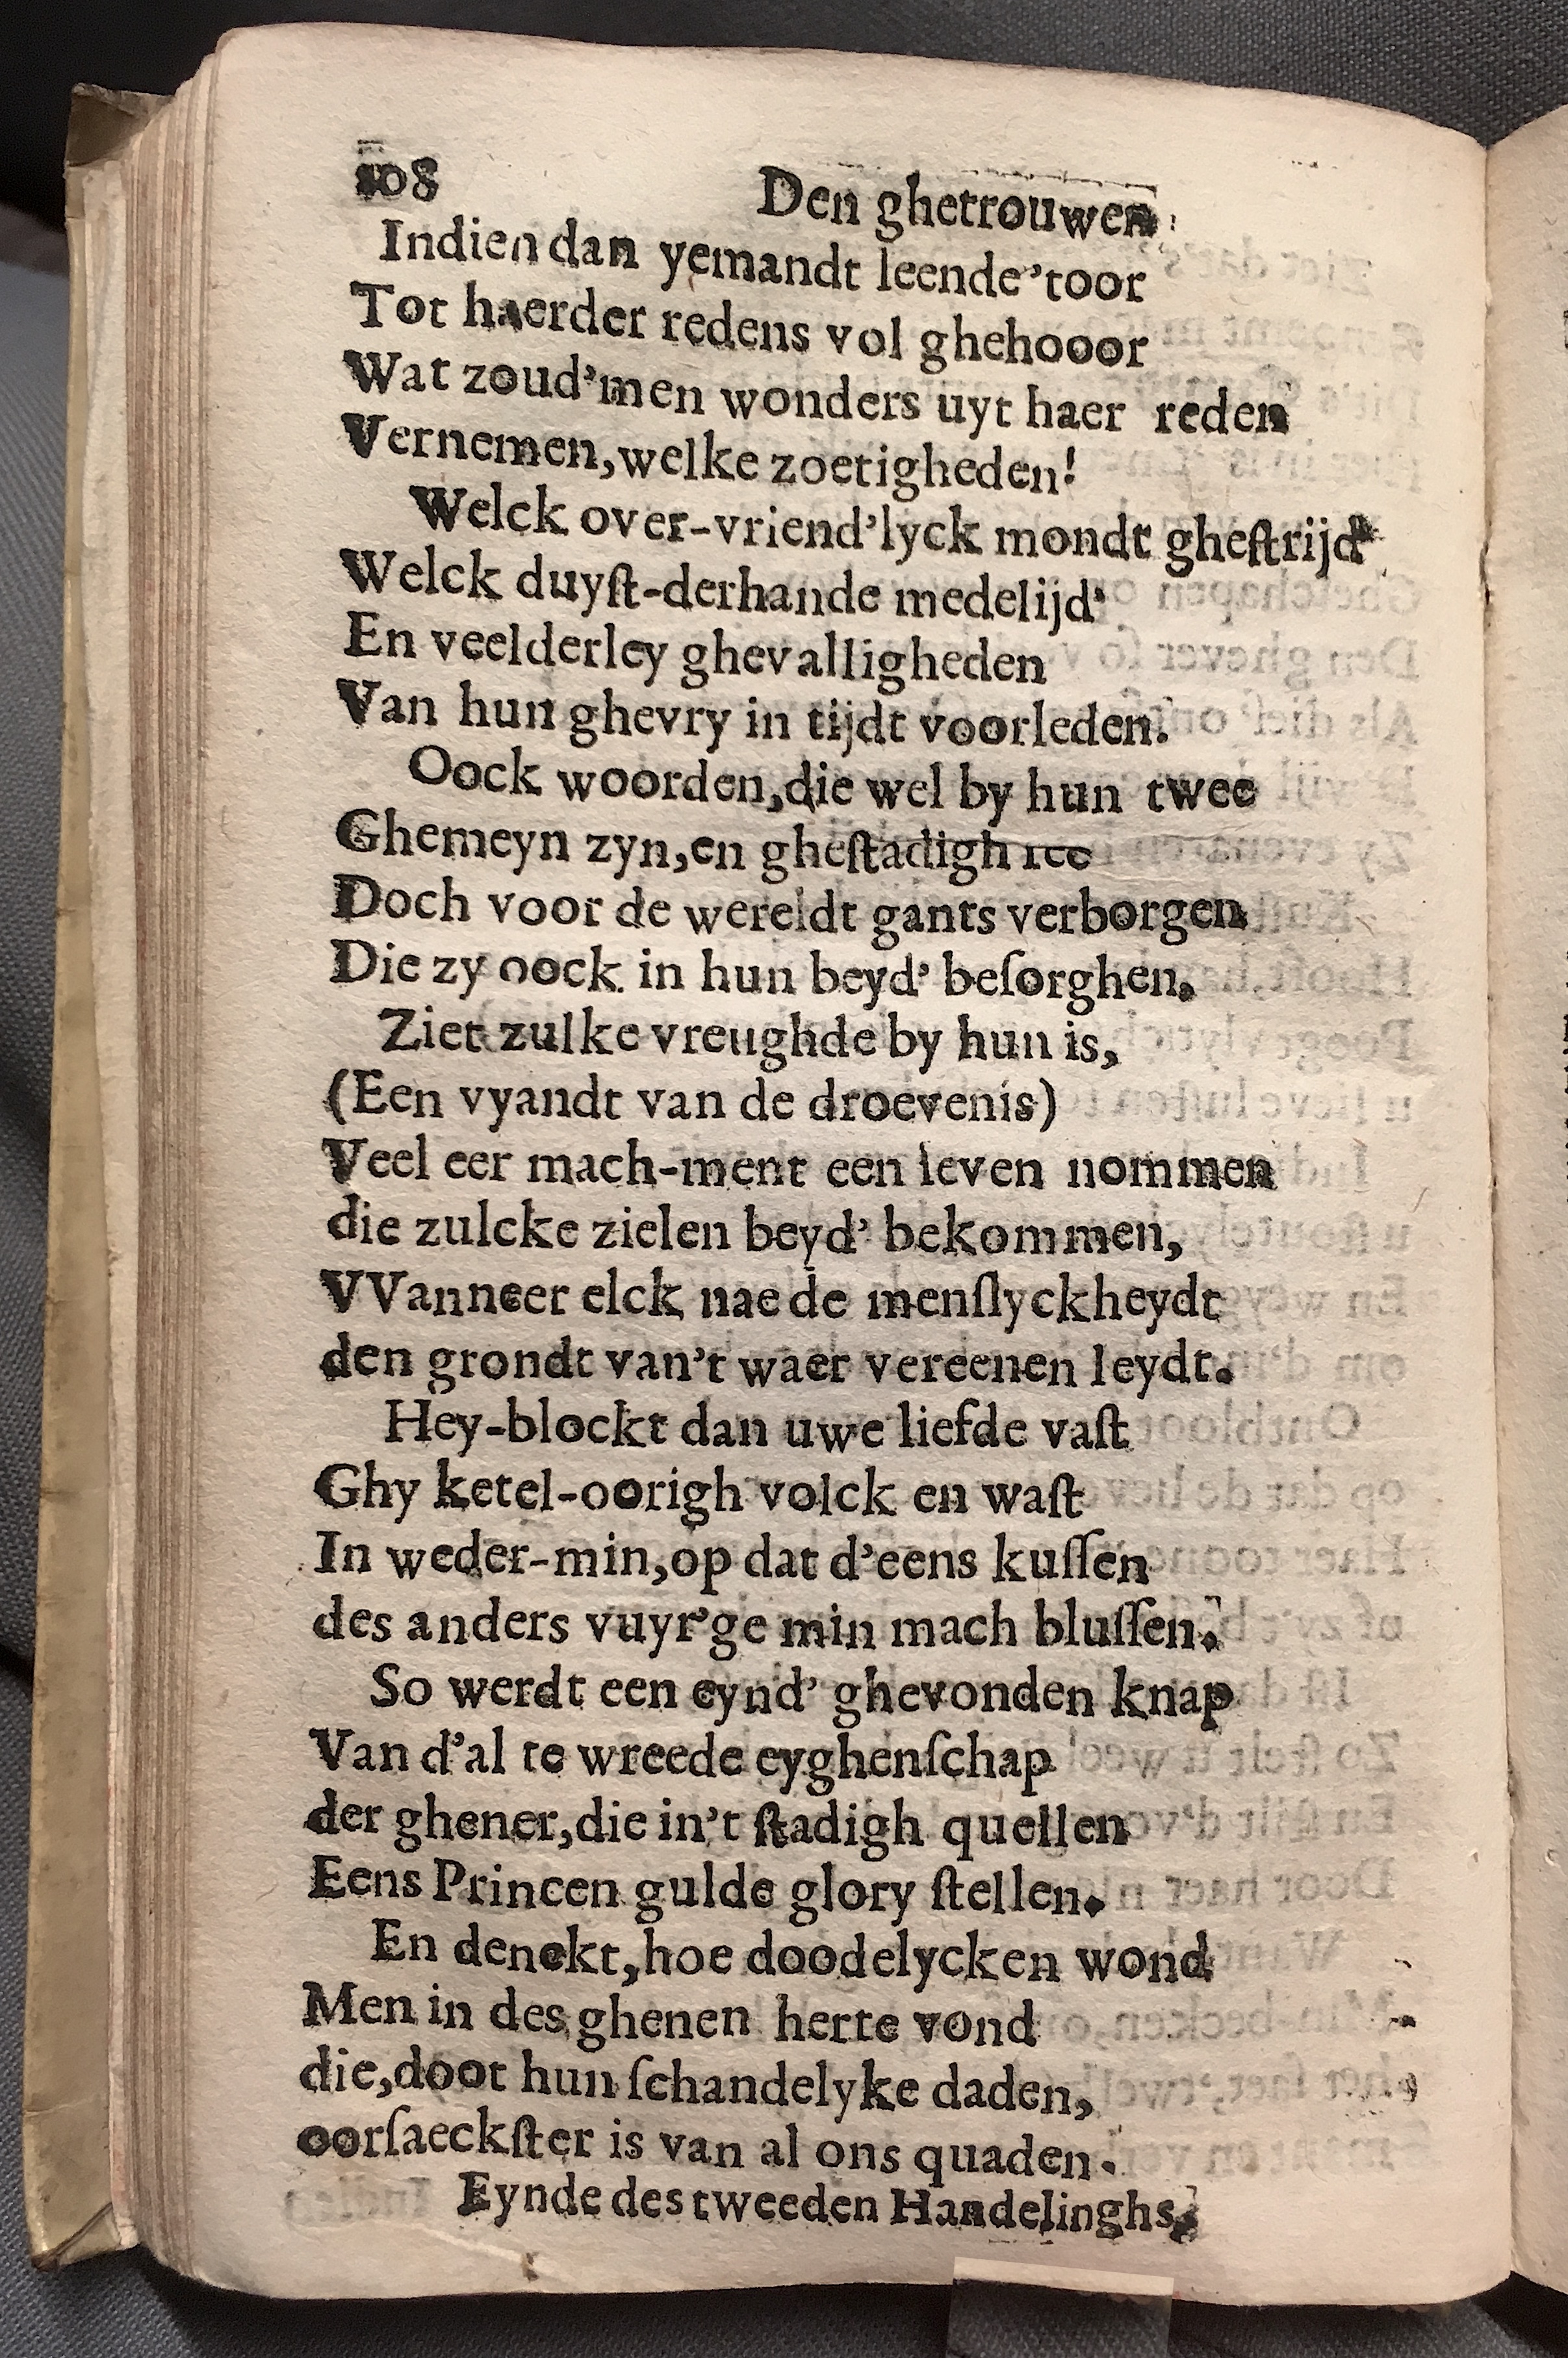 108 Den ghetrouwen
Indien dan yemandt leende'toor
Tot haerder redens vol ghehooor
Wat zoud'men wonders uyt haer reden
Vernemen, welke zoetigheden!
Welck over-vriend'lyck mondt gheſtrijd'
Welck duyſt-derhande medelijd'
En veelderley ghevalligheden
Van hun ghevry in tijdt voorleden.
Oock woorden, die wel by hun twee
Ghemeyn zyn, en gheſtadigh ree
Doch voor de wereldt gants verborgen
Die zy oock in hun beyd' beſorghen.
Ziet zulke vreughde by hun is,
(Een vyandt van de droevenis)
Veel eer mach-ment een leven nommen
die zulcke zielen beyd' bekommen,
VVanneer elck nae de menſlyckheydt
den grondt van't waer vereenen leydt.
Hey-blockt dan uwe liefde vaſt
Ghy ketel-oorigh volck en waſt
In weder-min, op dat d'eens kuſſen
des anders vuyr'ge min mach bluſſen.
So werdt een eynd' ghevonden knap
Van d'al te wreede eyghenſchap
der ghener, die in't ſtadigh quellen
Eens Princen gulde glory ſtellen.
En denckt, hoe doodelycken wond
Men in des ghenen herte vond
die, doot hun ſchandelyke daden,
oorſaeckſter is van al ons quaden.
Eynde des tweeden Handelinghs.